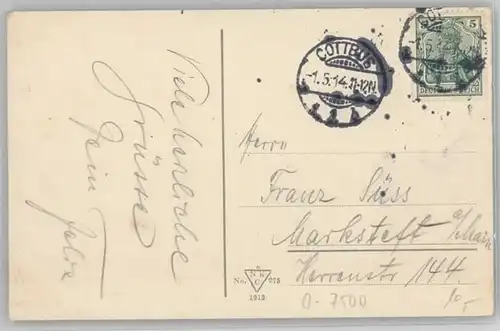 Viele herzliche
Grüsse
Dein
COTTBUS
-1.5.14.11-12N.
1 b
5
DEUTSCHES REICH
Herrn
Franz Süss
Marksteft a/Main
Herrenstr 144.
No. 275
N K C
1913
0-7500
10,-